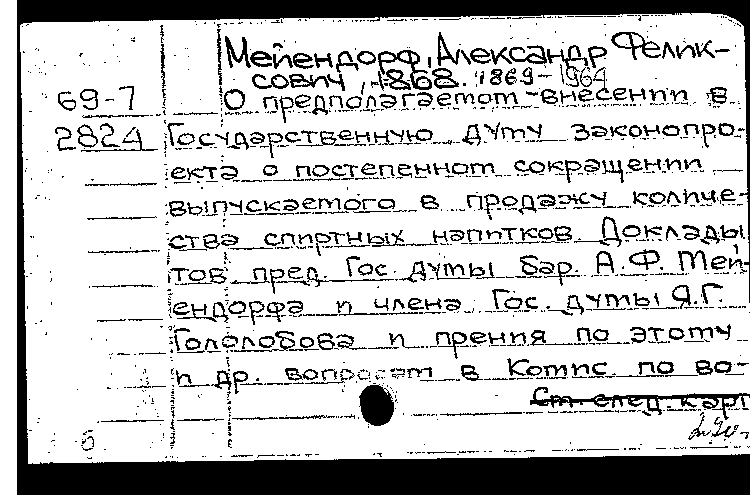 Мейендорф, Александр Феликсович, 1868. 1869-1964
69-7
2824
О предполагаемом внесении в
Государственную думу законопро-
екта о постепенном сокращении
выпускаемого в продажу количе-
ства спиртных напитков. Доклады
тов. пред. Гос. думы бар. А.Ф. Мей-
ендорфа и члена Гос. думы Я.Г.
Гололобова и прения по этому
и др. вопросам в Комис. по во-
См. след. карт
б